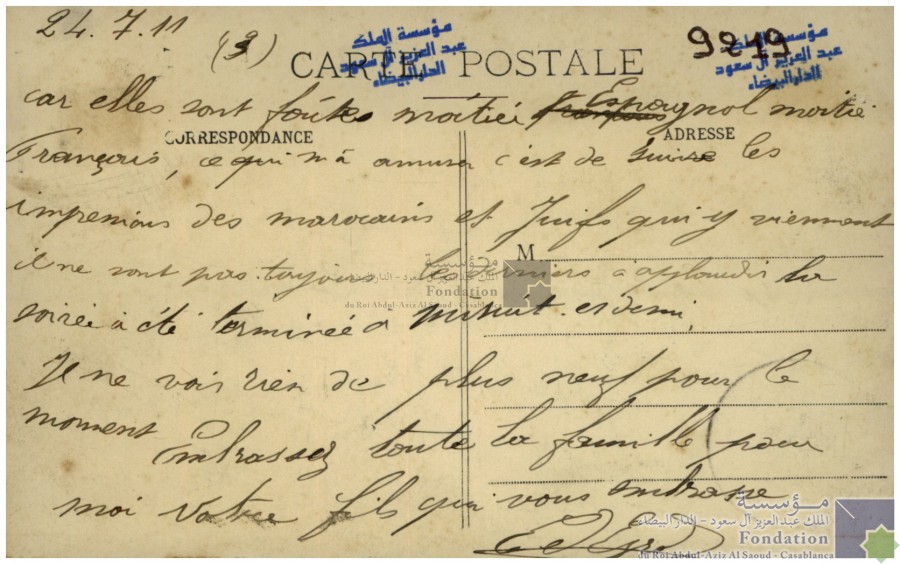 24.7.11
(3)
9219
مؤسسة الملك
عبد العزيز آل سعود
الدار البيضاء
مؤسسة الملك
عبد العزيز آل سعود
الدار البيضاء
CARTE POSTALE
car elles sont faites moitié Espagnol moitié
CORRESPONDANCE
ADRESSE
Français, ce qui m'a amuser c'est de suivre les
impressions des marocains et Juifs qui y viennent
M
il ne sont pas toujours les derniers a applaudir la
soirée à été terminée a minuit et demi,
Je ne vois rien de plus neuf pour le
moment Embrassez toute la famille pour
moi votre fils qui vous embrasse
مؤسسة
الملك عبد العزيز آل سعود - الدار البيضاء
Fondation
du Roi Abdul-Aziz Al Saoud - Casablanca
مؤسسة
الملك عبد العزيز آل سعود - الدار البيضاء
Fondation
du Roi Abdul-Aziz Al Saoud - Casablanca